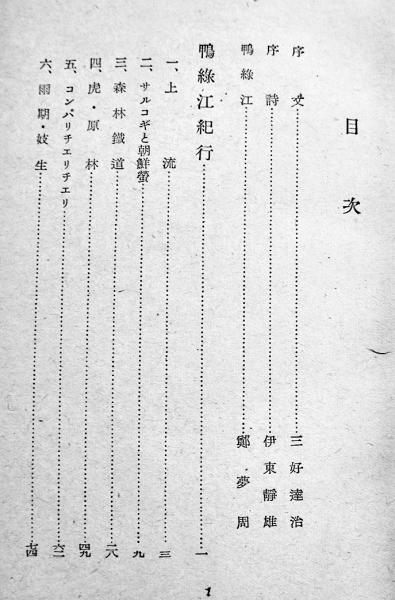 目次
序文……三好達治
序詩……伊東靜雄
鴨綠江……鄭夢周
鴨綠江紀行……一
一、上流……三
二、サルコギと朝鮮螢……九
三、森林鐵道……二八
四、虎・原林……四九
五、コンパリチエリチエリ……六二
六、雨期・妓生……七四
1